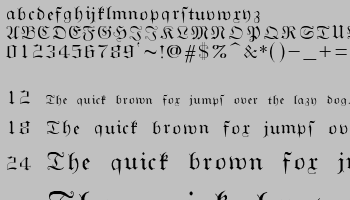 abcdefghijklmnopqrstuvwxyz
ABCDEFGHIJKLMNOPQRSTU
0123456789'~!@#$%^&*()-_+=
12 The quick brown fox jumps over the lazy dog.
18 The quick brown fox jumps ov
24 The quick brown fox ju